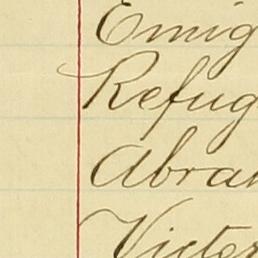 Emig
Refug
Abrah
Victor